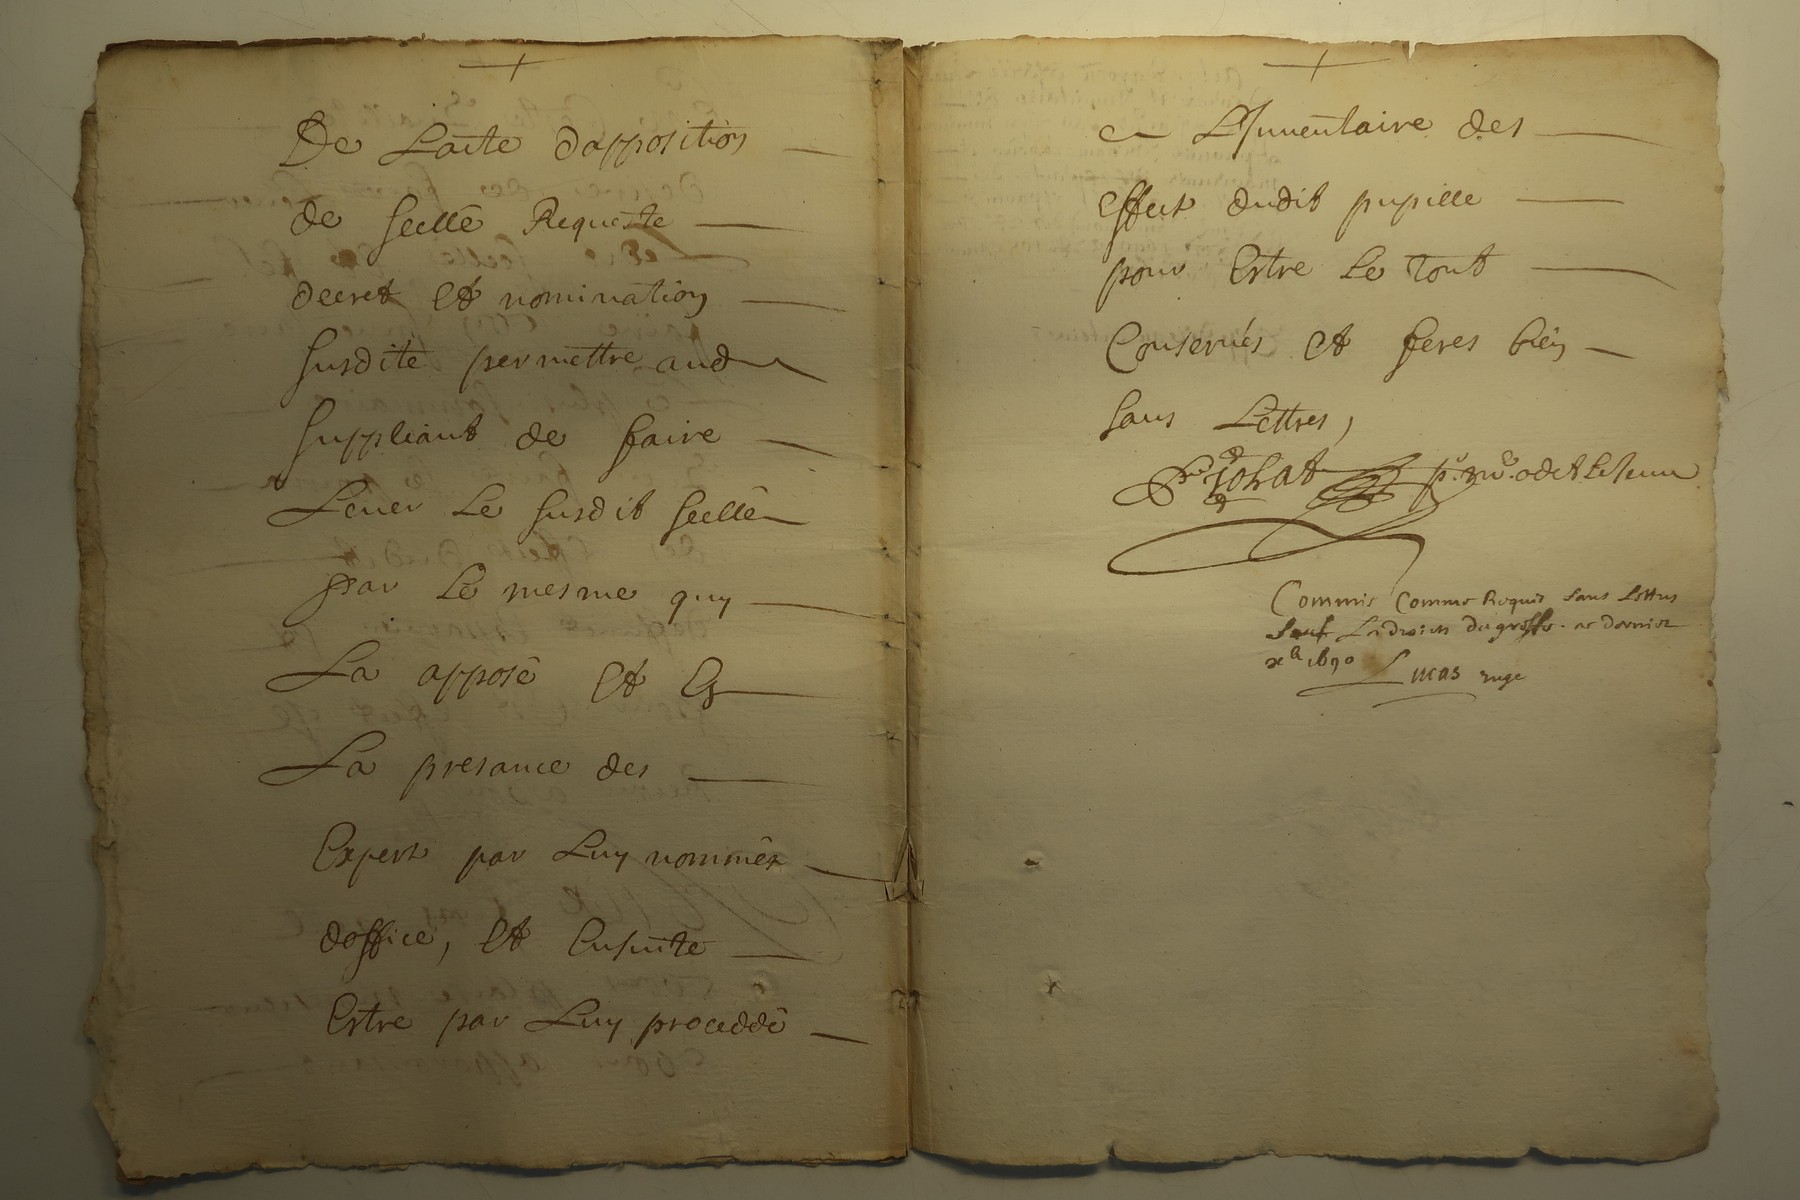 De Lacte dapposition
de scellé Requeste
decret et nomination
susdite permettre aud
suppliant de faire
Lever Le susdit scellé
par Le mesme quy
La apposé et En
La presance des
Expert par Luy nommés
doffice, et Ensuite
Estre par Luy proceddé
a LInventaire des
effect dudit pupille
pour Estre Le tout
Conservés et feres bien
sans Lettres,
Commis Comme Requis sans Lettres
sauf Les droits du greffe ce dernier
1690 Lucas Juge